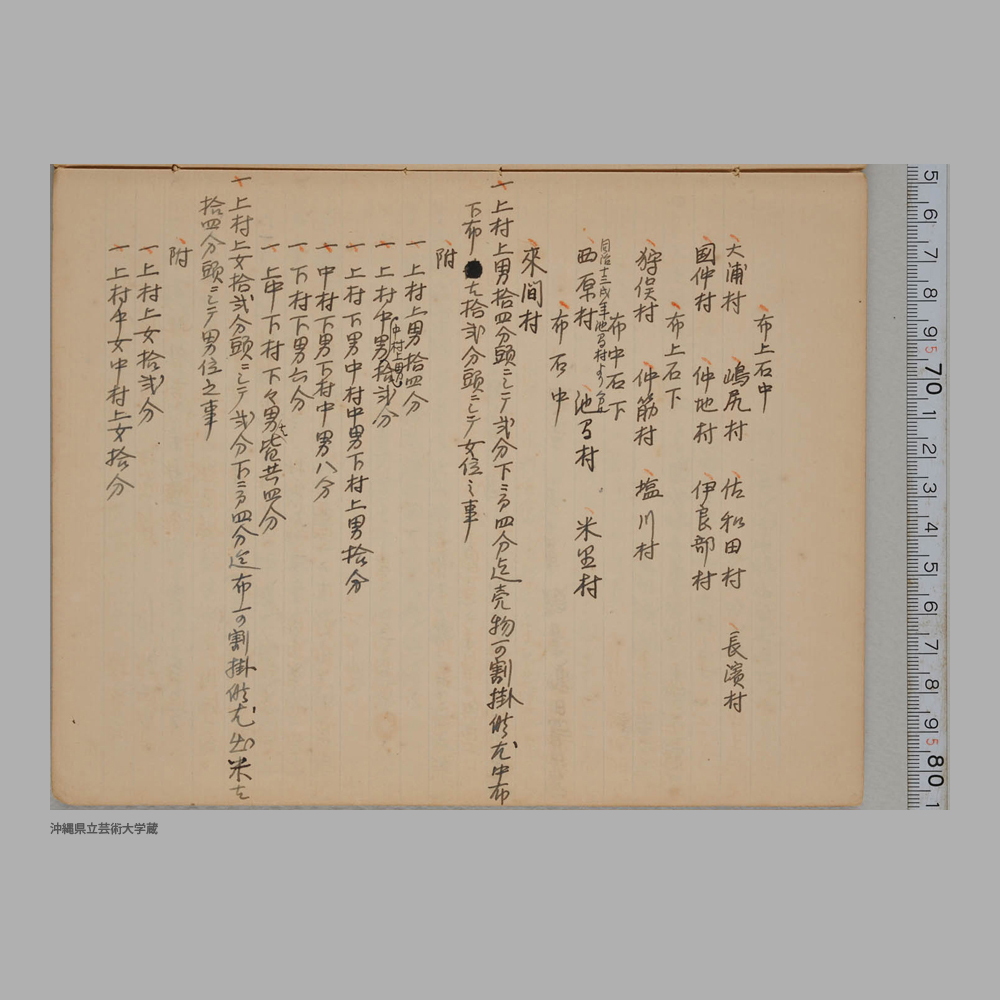 布上石中
大浦村 嶋尻村 佐和田村 長濱村
國仲村 仲地村 伊良部村
布上石下
狩俣村 仲筋村 塩川村
布中石下
同治十三戌年池間村より
西原村 池間村 米里村
布石中
來間村
一上村上男拾四分頭ニシテ弐分下ニ而四分迄売物可割掛候尤中布
下布を拾弐分頭ニシテ女位之事
附
一上村上男拾四分
一上村中男中村上男拾弐分
一上村下男中村中男下村上男拾分
一中村下男下村中男八分
一下村下男六分
一上中下村下々男は皆共四分
一上村上女拾弐分頭ニシテ弐分下ニ而四分迄布可割掛候尤出米を
拾四分頭ニシテ男位之事
附
一上村上女拾弐分
一上村中女中村上女拾分
5 6 7 8 9 5 70 1 2 3 4 5 6 7 8 9 5 80 1
沖縄県立芸術大学蔵